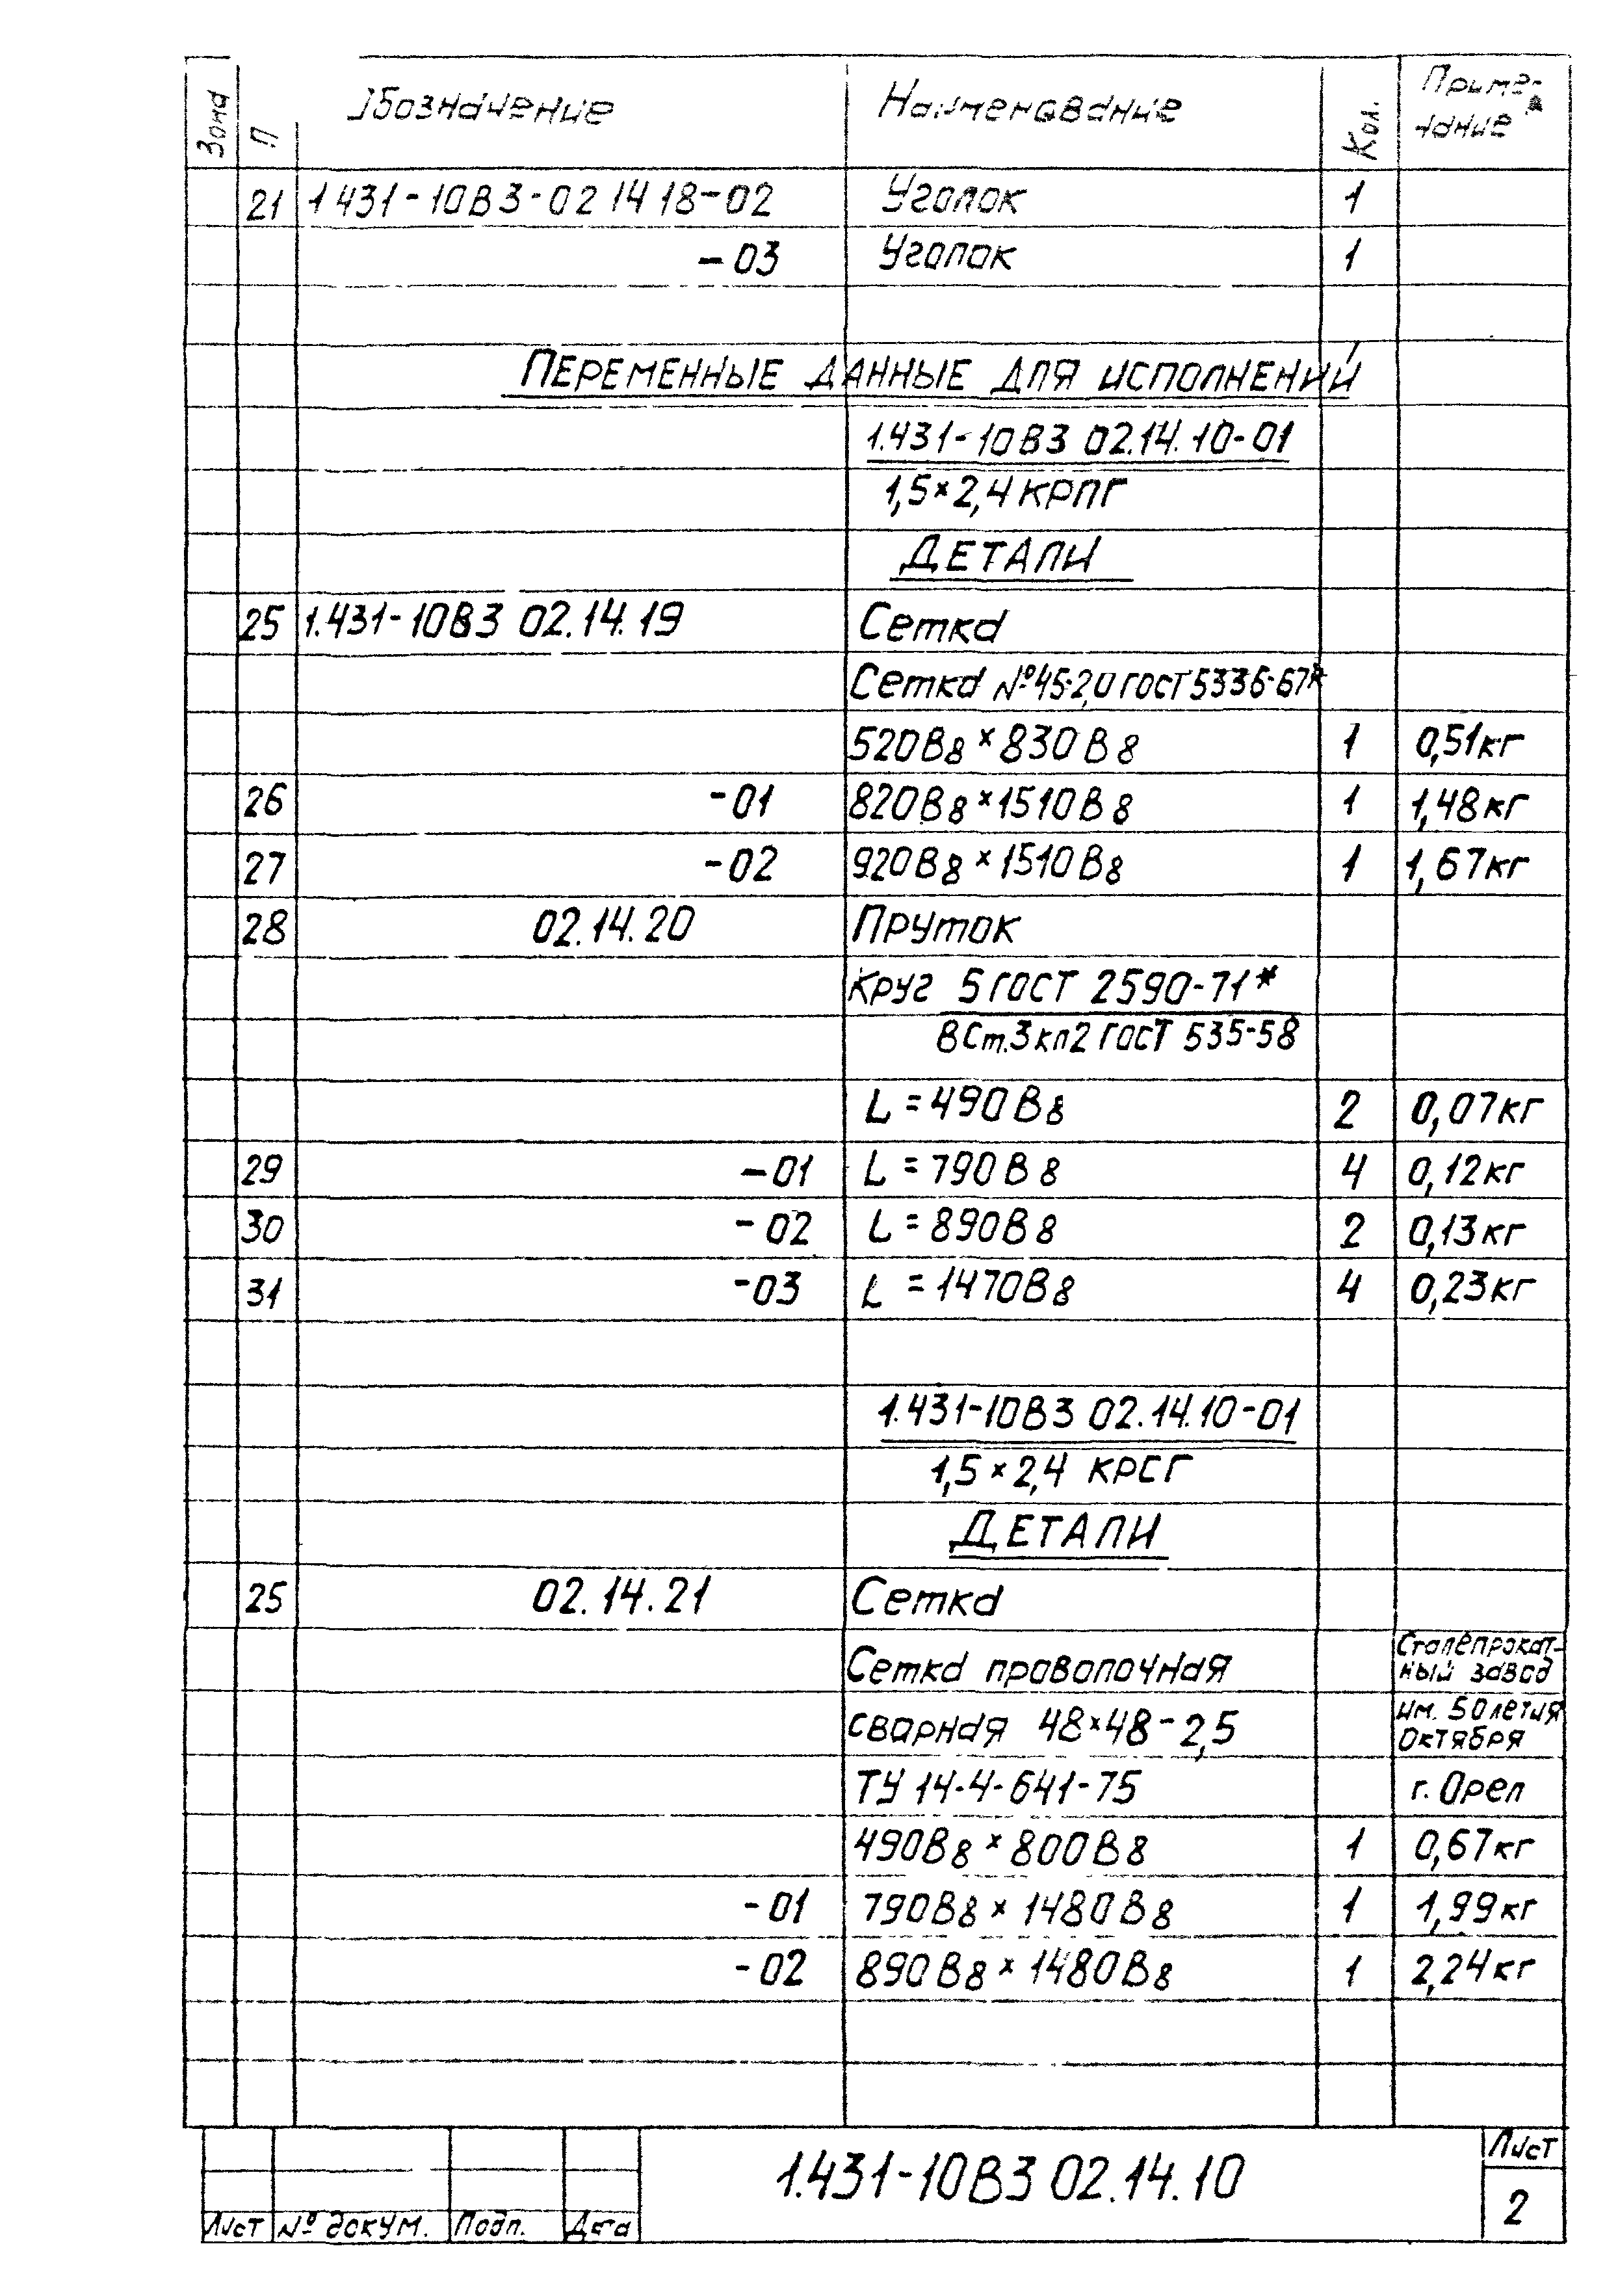 Зона П. Обозначение Наименование Кол. Приме-
чание
21 1.431-10В3-02 14 18-02 Уголок 1
-03 Уголок 1
ПЕРЕМЕННЫЕ ДАННЫЕ ДЛЯ ИСПОЛНЕНИЙ
1.431-10В3 02.14.10-01
1,5×2,4 КРПГ
ДЕТАЛИ
25 1.431-10В3 02.14.19 Сетка
Сетка №45-2,0 ГОСТ 5336-67*
520В8×830В8 1 0,51кг
26 -01 820В8×1510В8 1 1,48кг
27 -02 920В8×1510В8 1 1,67кг
28 02.14.20 Пруток
Круг 5 ГОСТ 2590-71*
ВСт.3кп2 ГОСТ 535-58
L=490В8 2 0,07кг
29 -01 L=790В8 4 0,12кг
30 -02 L=890В8 2 0,13кг
31 -03 L=1470В8 4 0,23кг
1.431-10В3 02.14.10-01
1,5×2,4 КРСГ
ДЕТАЛИ
25 02.14.21 Сетка
Сетка проволочная Сталепрокат-
ный завод
сварная 48×48-2,5 им. 50летия
Октября
ТУ 14-4-641-75 г. Орел
490В8×800В8 1 0,67кг
-01 790В8×1480В8 1 1,99кг
-02 890В8×1480В8 1 2,24кг
1.431-10В3 02.14.10 Лист
2
Лист № докум. Подп. Дата